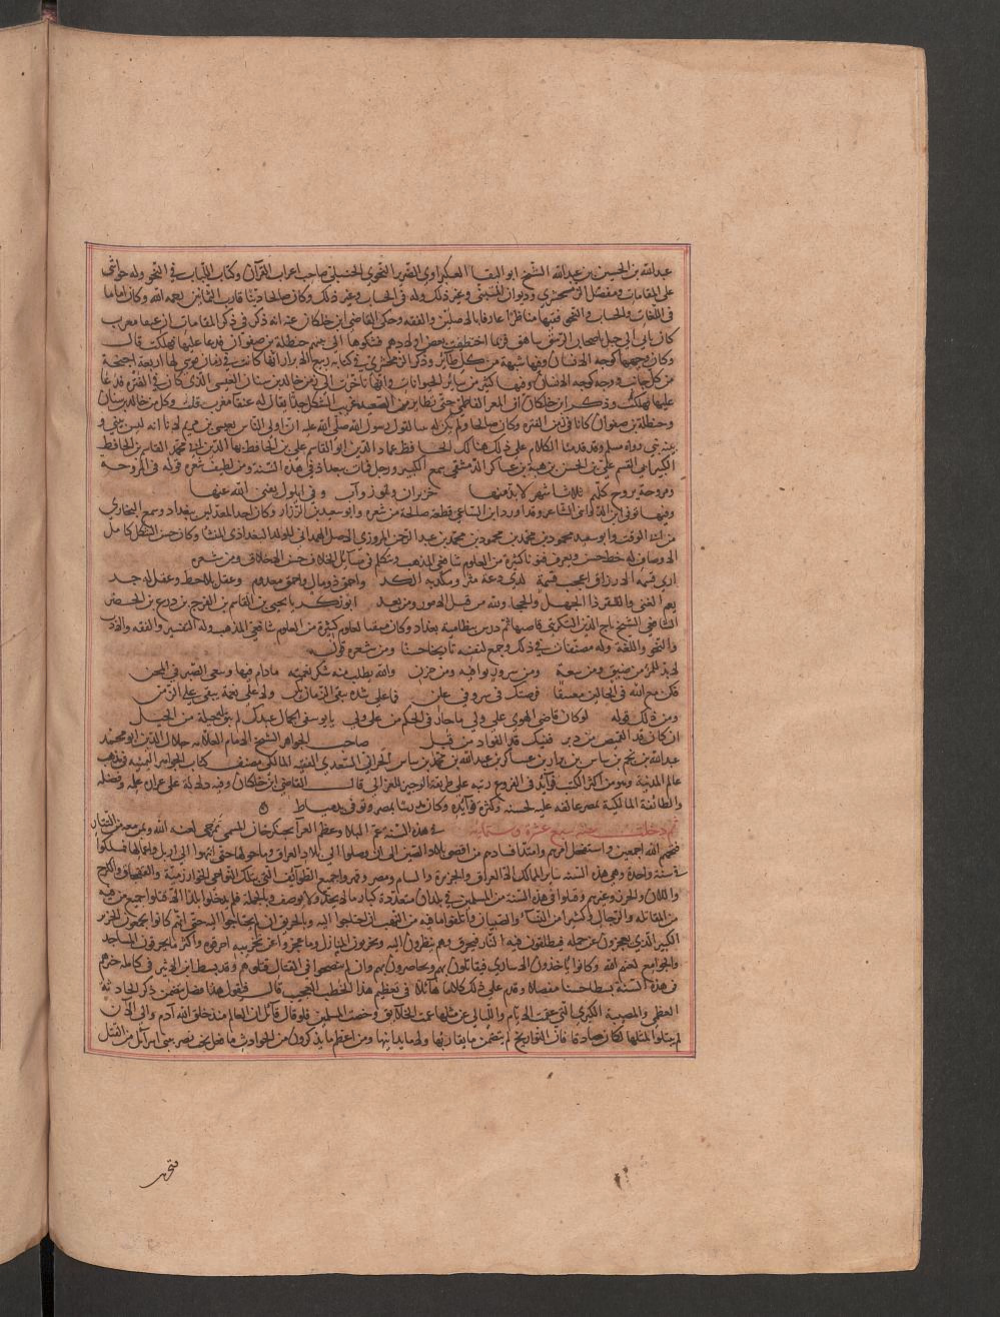 عبدالله بن الحسين بن عبدالله الشيخ ابو البقا العكبراوي الضرير النحوي الحنبلي صاحب اعراب القرآن وكتاب اللباب في النحو وله حواشي
على المقامات ومفصل الزمخشري وديوان المتنبي وغير ذلك وله في الحساب وغير ذلك وكان صالحا دينا قارب الثمانين رحمه الله وكان اماما
في اللغات والحساب والنحو فقيها مناظرا عارفا بالاصلين والفقه وحكى القاضي ابن خلكان عنه انه ذكر في ذكر المقامات ان عنقا مغرب
كان ياتي الى جبل اصحاب الرس شاهق فربما اختطفت بعض اولادهم فشكوها الى نبيهم حنظلة بن صفوان فدعا عليها فهلكت قال
وكان وجهها كوجه الانسان وفيها شبه من كل طائر وذكر الزمخشري في كتابه ربيع الابرار انها كانت في زمان موسى لها اربعة اجنحة
من كل جانب ووجه كوجه الانسان وفيها كثير من ساير الحيوانات وانها تاخرت الى زمن خالد بن سنان العبسي الذي كان في الفترة فدعا
عليها فهلكت وذكر ابن خلكان ان المعز الفاطمي جي بطاير من الصعيد غريب الشكل جدا يقال له عنقا مغرب قلت وكل من خالد بن سنان
وحنظلة بن صفوان كانا في زمن الفترة وكان صالحا ولم يكن نبيا لقول رسول الله صلى الله عليه انا اولى الناس بعيسى بن مريم لانه ليس بيني و
بينه نبي رواه مسلم وقد قدمنا الكلام على ذلك هنالك الحافظ عماد الدين ابو القاسم علي بن الحافظ بها الدين ابي محمد القاسم بن الحافظ
الكبير ابي القسم علي بن الحسن بن هبة بن عساكر الدمشقي سمع الكبير ورحل فمات ببغداد في هذه السنة ومن لطيف شعره قوله في المروحة
ومروحة تروح كل هم ثلاثة اشهر لا بد منها حزيران وتموز وآب وفي ايلول يغني الله عنها
وفيها توفي ابن الشاعر وقد اورد ابن الساعي قطعة صالحة من شعره وابو سعيد بن الرزاز وكان احد المعدلين ببغداد وسمع البخاري
من ابي الوقت وابو سعيد محمود بن محمد بن محمود بن محمد بن عبد الرحمن المروزي الاصل الهمداني المولد البغدادي المنشأ وكان حسن الشكل كامل
الاوصاف له خط حسن ويعرف فنونا كثيرة من العلوم شافعي المذهب يتكلم في مسائل الخلاف حسن الاخلاق ومن شعره
ارى قسم الارزاق اعجب قسمة لذي دعة مثر ومكدية الكد واحمق ذو مال واحمق معدم وعقل بلا حظ وعقل له جد
يعم الغنى والفقر ذا الجهل والحجا ولله من قبل الامور ومن بعد ابو زكريا يحيى بن القاسم بن الفرج بن درع بن الخضر
الشافعي الشيخ تاج الدين التكريتي قاضيها ثم درس بنظامية بغداد وكان متقنا لعلوم كثيرة من العلوم شافعي المذهب وله التفسير والفقه والادب
والنحو واللغة وله مصنفات في ذلك وجمع لنفسه تاريخا حسنا ومن شعره قوله
لا بد للمرء من ضيق ومن سعة ومن سرور يوافيه ومن حزن والله يطلب منه شكر نعمته مادام فيها ويبغي الصبر في المحن
فكن مع الله في الحالين معتنقا فرضيك في سر وفي علن فما على شدة يبقى الزمان ولا على نعمة تبقى على الزمن
ومن ذلك قوله لو كان قاضي الهوى علي ولي ما جار في الحكم من علي ولي يا يوسفي الجمال عبدك لم تبق له حيلة من الحيل
ان كان قد القميص من دبر ففيك قد الفؤاد من قبل صاحب الجواهر الشيخ الامام العلامة جلال الدين ابو محمد
عبدالله بن نجم بن شاس بن نزار بن عساكر بن عبدالله بن محمد بن شاس السعدي الفقيه المالكي مصنف كتاب الجواهر الثمينة في مذهب
عالم المدينة وهو من اكثر الكتب فوايد في الفروع رتبه على طريقة الوجيز للغزالي قال القاضي ابن خلكان وفيه دلالة على غزارة علمه وفضله
والطائفة المالكية بمصر عاكفة عليه لحسنه وكثرة فوايده وكان مدرسا بمصر وتوفي بدمياط
ثم دخلت سنة سبع عشرة وستماية في هذه السنة عم البلاء وعظم العزاء بجنكز خان المسمى تموجين لعنه الله ومن معه من التتار
قبحهم الله اجمعين واستفحل امرهم وامتد افسادهم من اقصى بلاد الصين الى ان وصلوا الى بلاد العراق وما حولها حتى انتهوا الى اربل واعمالها فملكوا
في سنة واحدة وهي هذه السنة ساير الممالك الا العراق والجزيرة والشام ومصر وقهروا جميع الطوائف التي بتلك النواحي الخوارزمية والقفجاق والكرج
واللان والخزر وغيرهم وقتلوا في هذه السنة من المسلمين في بلدان متعددة كبار ما لا يحد ولا يوصف وبالجملة فلم يدخلوا بلدا الا قتلوا جميع من فيه
من المقاتلة والرجال وكثيرا من النساء والصبيان واتلفوا ما فيه من النهب ان احتاجوا اليه وبالحريق ان لم يحتاجوا اليه حتى انهم كانوا يجمعون الحرير
الكبير الذي يعجزون عن حمله فيطلقون فيه النار فيحرق وهم ينظرون اليه ويخربون المنازل وما عجزوا عن تخريبه احرقوه واكثر ما يحرقون المساجد
والجوامع لعنهم الله وكانوا ياخذون الاسارى فيقاتلون بهم ويحاصرون بهم وان لم ينصحوا في القتال قتلوهم وقد بسط ابن الاثير في كامله خبرهم
في هذه السنة بسطا حسنا مفصلا وقدم على ذلك كلاما هائلا في تعظيم هذا الخطب العجيب قال فنقول هذا فصل يتضمن ذكر الحادثة
العظمى والمصيبة الكبرى التي عقمت الايام والليالي عن مثلها عمت الخلائق وخصت المسلمين فلو قال قائل ان العالم منذ خلق الله آدم والى الآن
لم يبتلوا بمثلها لكان صادقا فان التواريخ لم تتضمن ما يقاربها ولا ما يدانيها ومن اعظم ما يذكرون من الحوادث ما فعل بخت نصر ببني اسرائيل من القتل